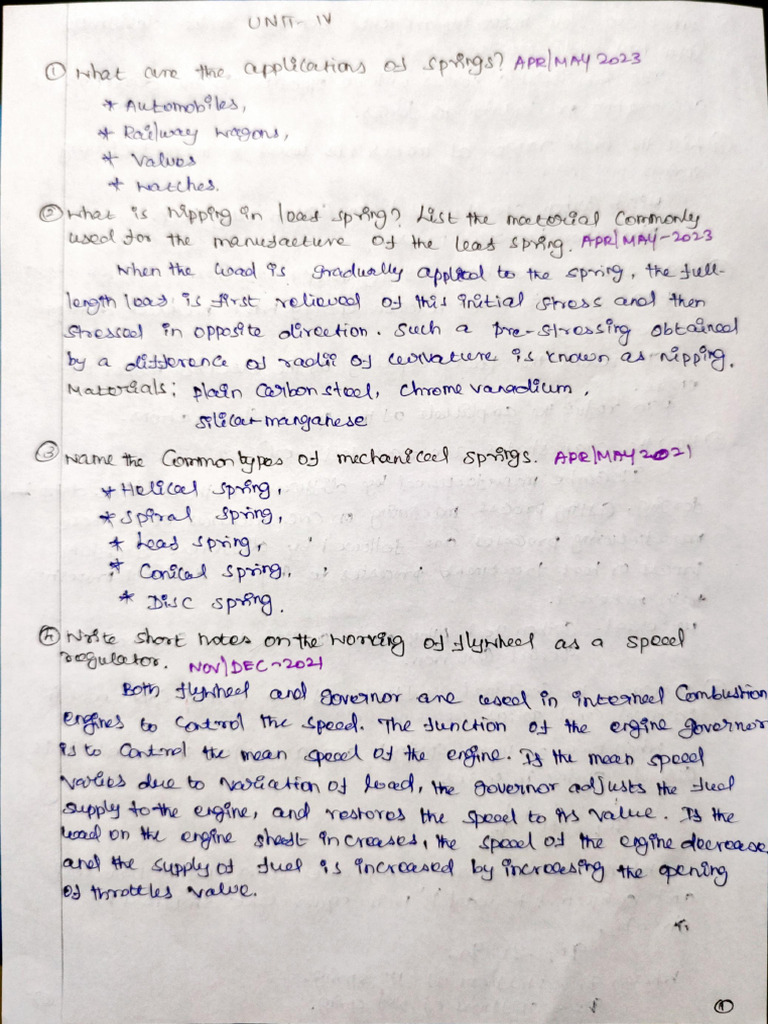 UNIT- IV
① What are the applications of springs? APR/MAY 2023
* Automobiles,
* Railway wagons,
* Valves
* Watches.
② What is Nipping in leaf spring? List the material Commonly
used for the manufacture of the leaf spring. APR/MAY-2023
When the load is gradually applied to the spring, the full-
length leaf is first relieved of this initial stress and then
stressed in opposite direction. Such a pre-stressing obtained
by a difference of radii of curvature is known as nipping.
Materials: plain Carbon steel, chrome vanadium,
silica-manganese
③ Name the Common types of mechanical springs. APR/MAY 2021
* Helical spring,
* Spiral spring,
* Leaf spring,
* Conical spring,
* Disc spring.
④ Write short notes on the working of flywheel as a speed
regulator. NOV/DEC-2021
Both flywheel and governor are used in internal Combustion
engines to Control the speed. The function of the engine governor
is to Control the mean speed of the engine. If the mean speed
varies due to variation of load, the governor adjusts the fuel
supply to the engine, and restores the speed to its value. If the
load on the engine shaft increases, the speed of the engine decrease
and the supply of fuel is increased by increasing the opening
of throttles valve.
①